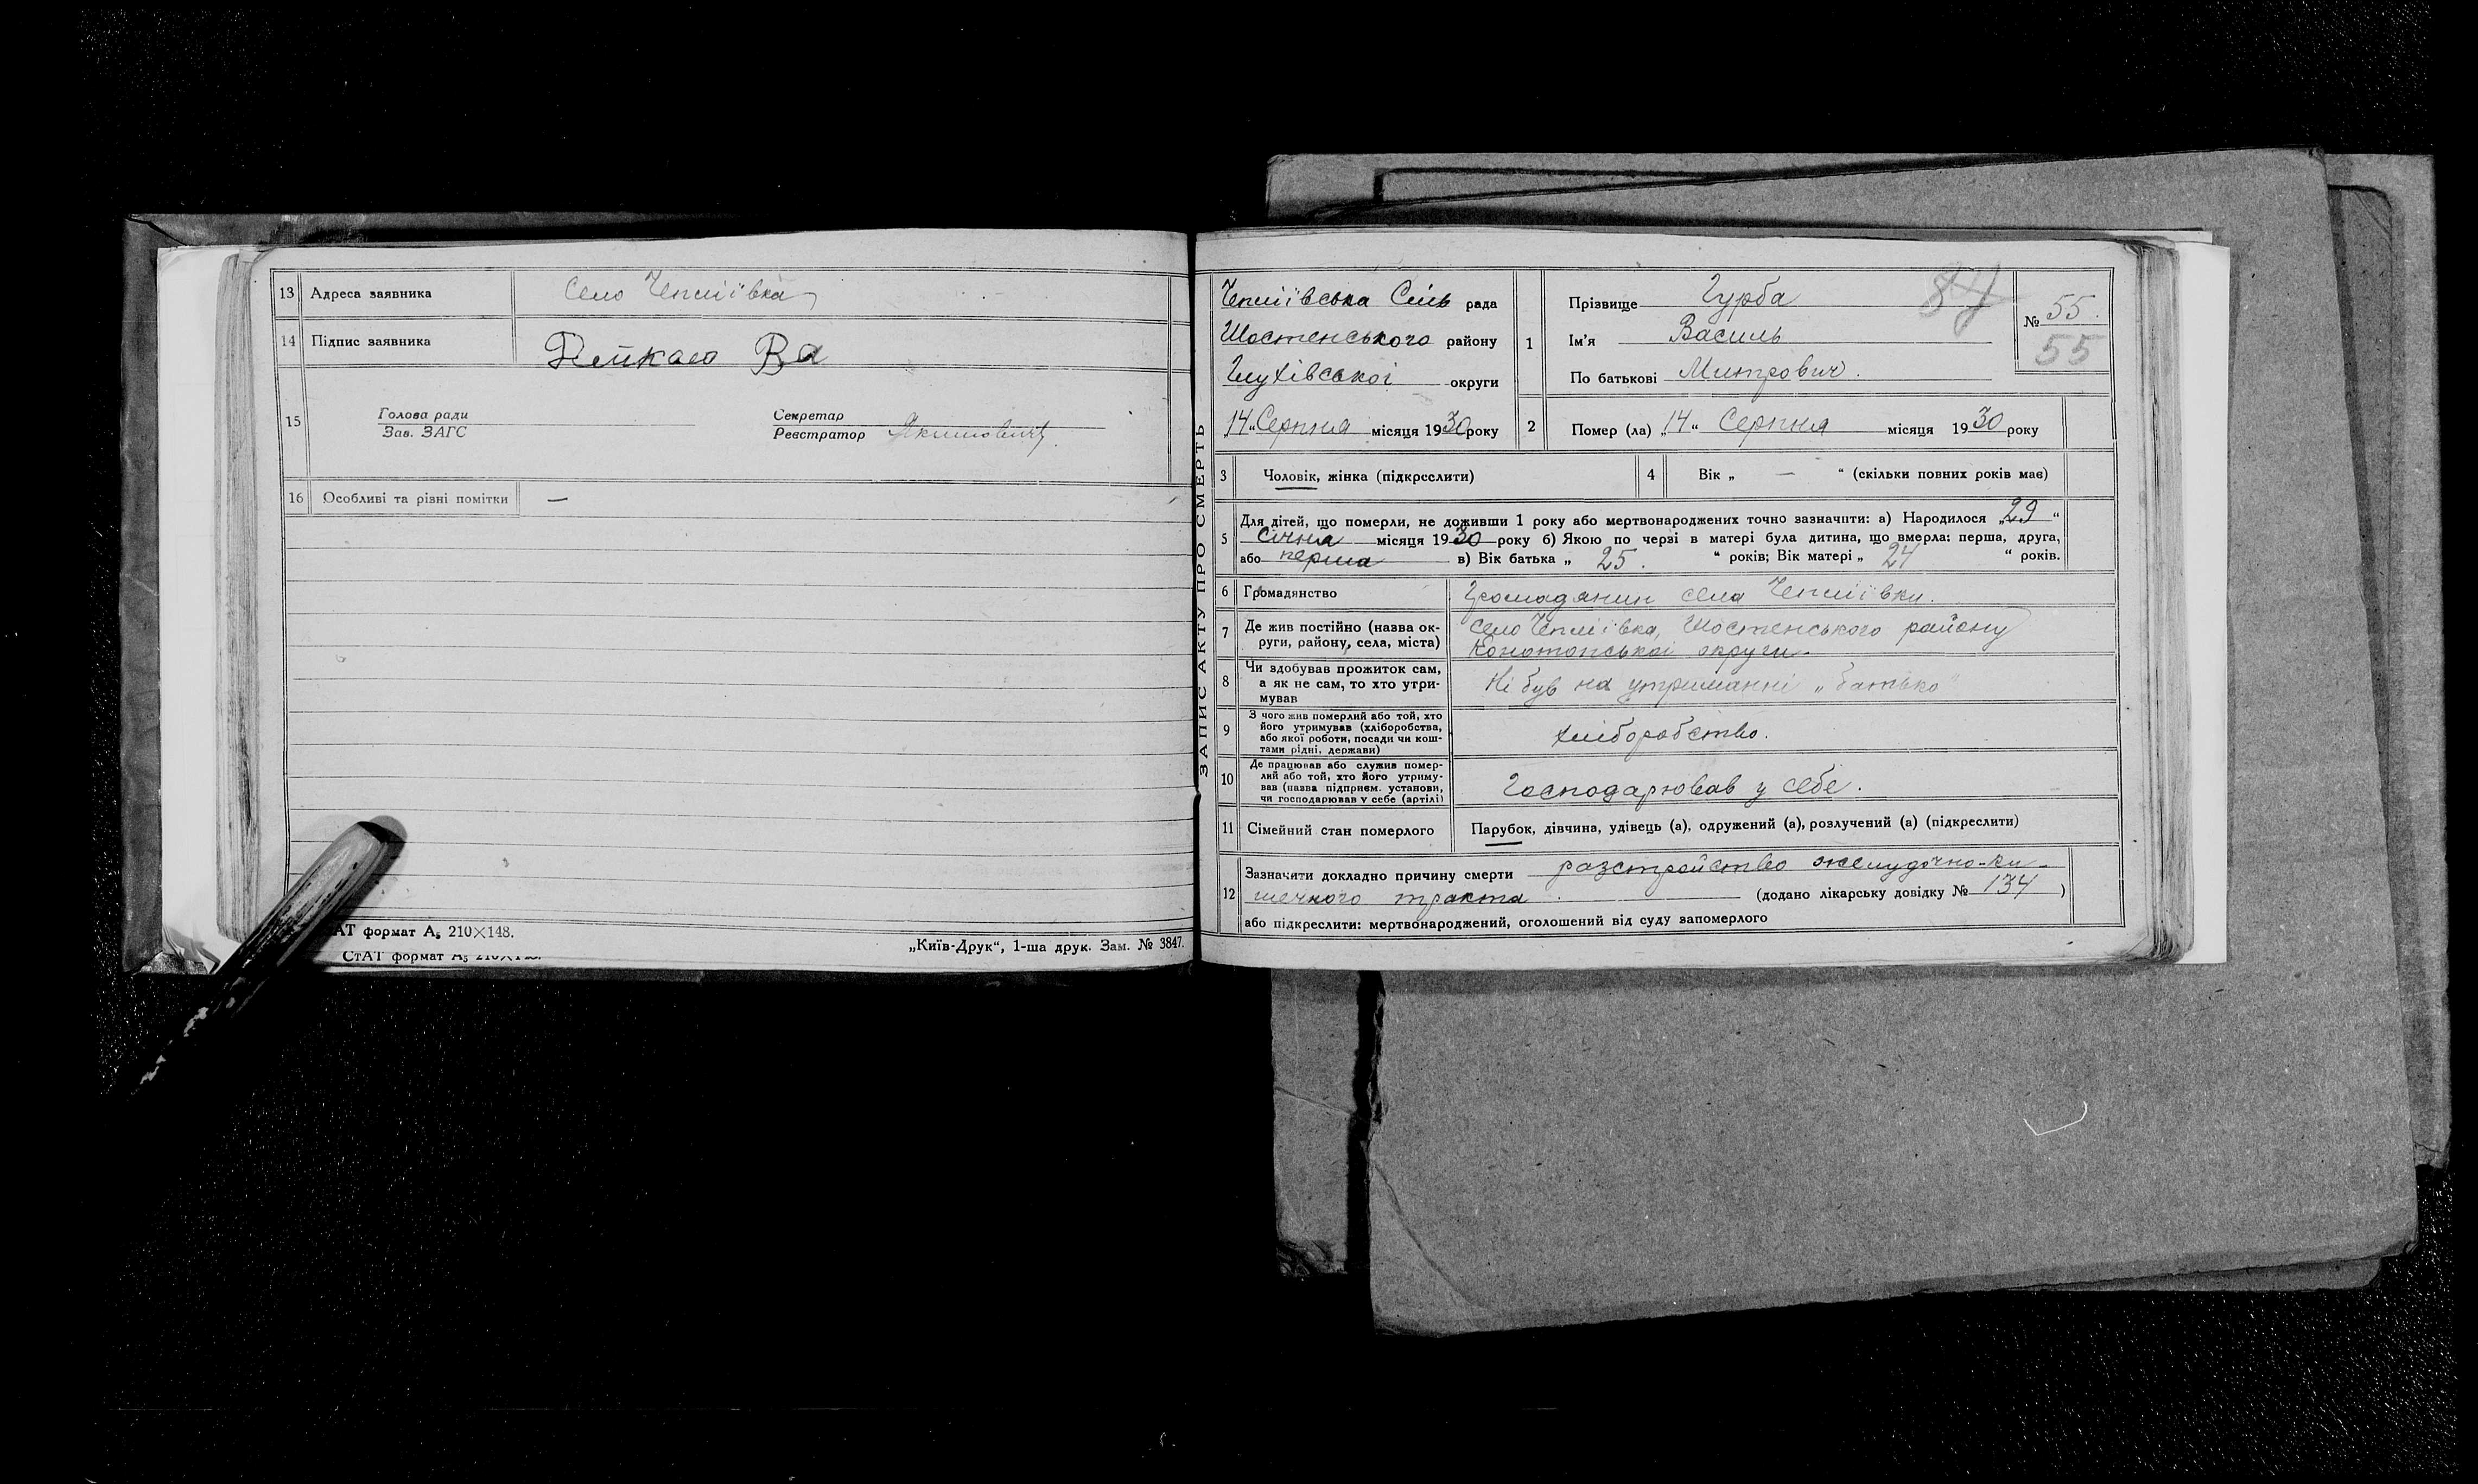 13 Адреса заявника Село Чепліївка
14 Підпис заявника
15 Голова ради Секретар
Зав. ЗАГС Реєстратор Якимович
16 Особливі та різні помітки —
АТ формат А₅ 210×148.
„Київ-Друк“, 1-ша друк. Зам. № 3847.
СтАТ формат А₅
ЗАПИС АКТУ ПРО СМЕРТЬ
Чепліївська Сіль рада
Шостенського району
Глухівської округи
„14“ Серпня місяця 1930 року
1 Прізвище Гурба
Ім’я Василь
По батькові Митрович.
№ 55.
55
2 Помер (ла) „14“ Серпня місяця 1930 року
3 Чоловік, жінка (підкреслити)
4 Вік „ — “ (скільки повних років має)
5 Для дітей, що померли, не доживши 1 року або мертвонароджених точно зазначити: а) Народилося „29“
Січня місяця 1930 року б) Якою по черзі в матері була дитина, що вмерла: перша, друга,
або перша в) Вік батька „ 25. “ років; Вік матері „ 24 “ років.
6 Громадянство Громадянин села Чепліївки.
7 Де жив постійно (назва ок-
руги, району, села, міста)
Село Чепліївка, Шостенського району
Конотопської округи.
8 Чи здобував прожиток сам,
а як не сам, то хто утри-
мував
Ні був на утриманні „батько“
9 З чого жив померлий або той, хто
його утримував (хліборобства,
або якої роботи, посади чи кош-
тами рідні, держави)
хліборобство.
10 Де працював або служив помер-
лий або той, хто його утриму-
вав (назва підприєм. установи,
чи господарював у себе (артілі)
Господарював у себе.
11 Сімейний стан померлого Парубок, дівчина, удівець (а), одружений (а), розлучений (а) (підкреслити)
12 Зазначити докладно причину смерти разстройство желудочно-ки-
шечного тракта. (додано лікарську довідку № 134 )
або підкреслити: мертвонароджений, оголошений від суду запомерлого